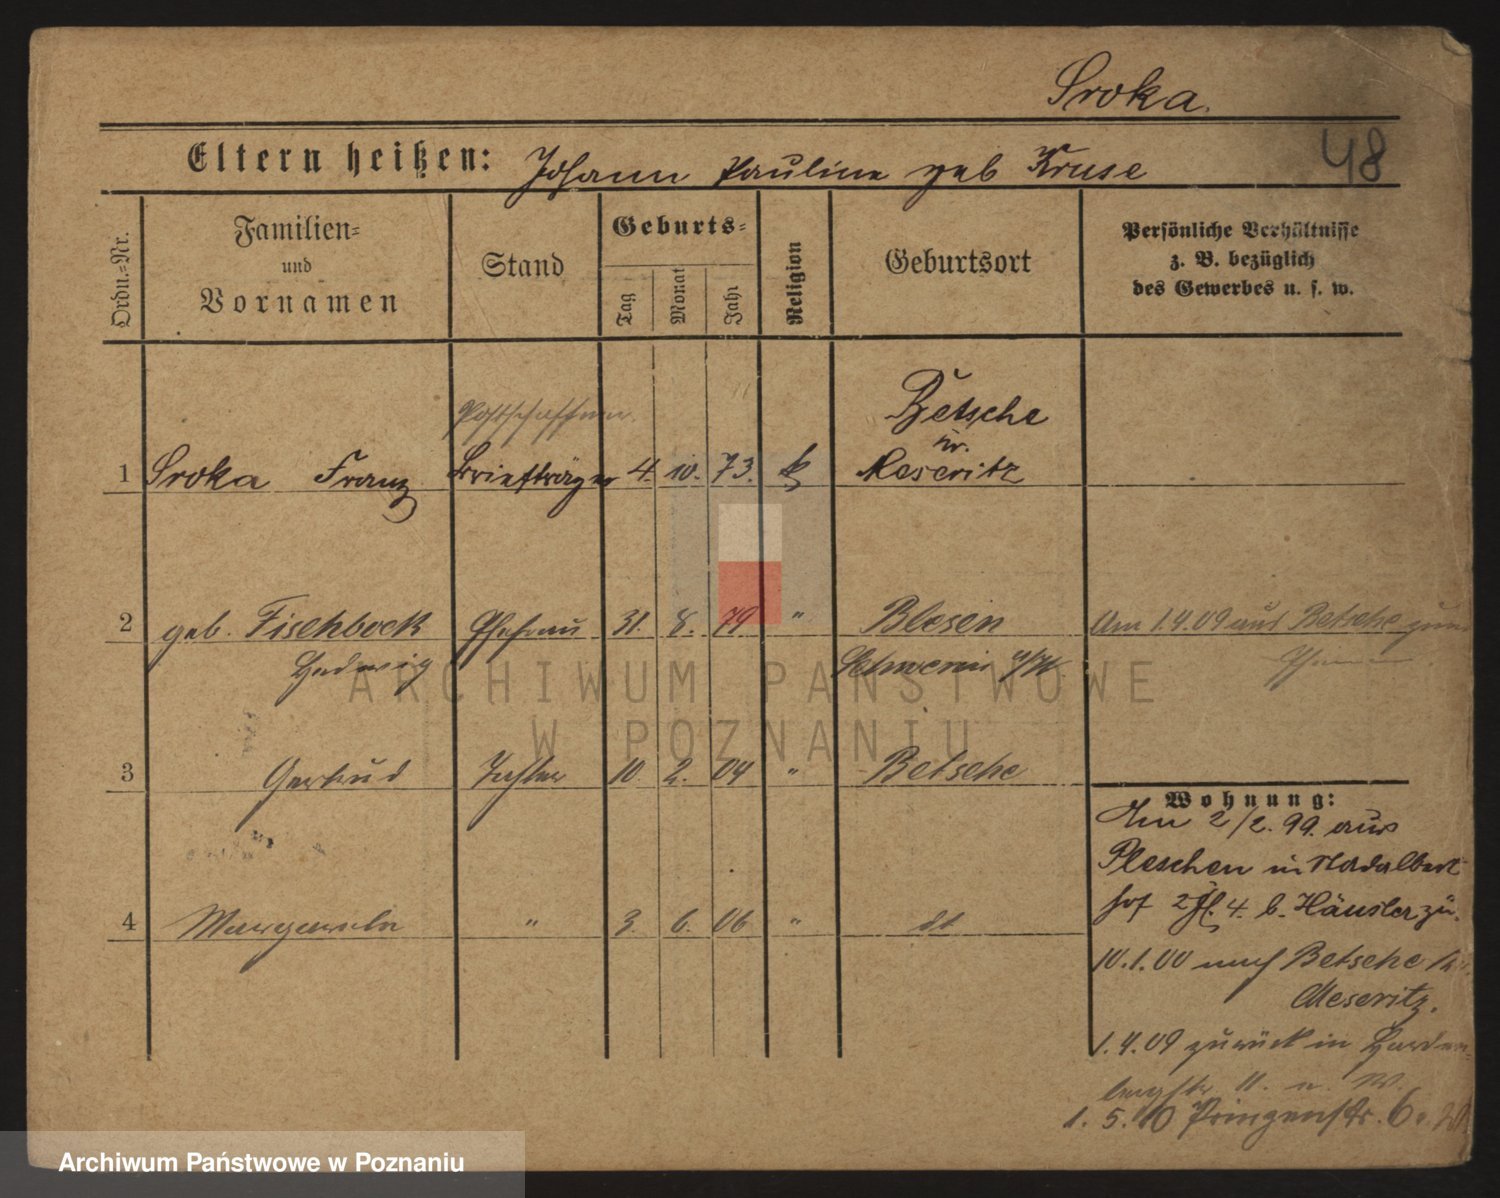 Sroka.
48
Eltern heißen: Johann Pauline geb Kruse
Ordn.=Nr.
Familien=
und
Vornamen
Stand
Geburts=
Tag
Monat
Jahr
Religion
Geburtsort
Persönliche Verhältnisse
z. B. bezüglich
des Gewerbes u. s. w.
Postschaffner
Betsche
Kr.
1 Sroka Franz Briefträger 4. 10. 73. k Meseritz
2 geb. Fischbock Ehefrau 31. 8. 79 " Blesen Am 1.4.09 aus Betsche
Hedwig Schwerin a/W.
3 Gertrud Tochter 10. 2. 04 " Betsche
4 Margarete " 3 6. 06 " dt
Wohnung:
Am 2/2. 99. aus
Pleschen in
hof 2 4. b. Häusler zu.
10.1.00 nach Betsche Kr.
Meseritz.
1.4.09 zurück in Harden=
bergstr 11.
1. 5. 10 Prinzenstr. 6
ARCHIWUM PAŃSTWOWE
W POZNANIU
Archiwum Państwowe w Poznaniu